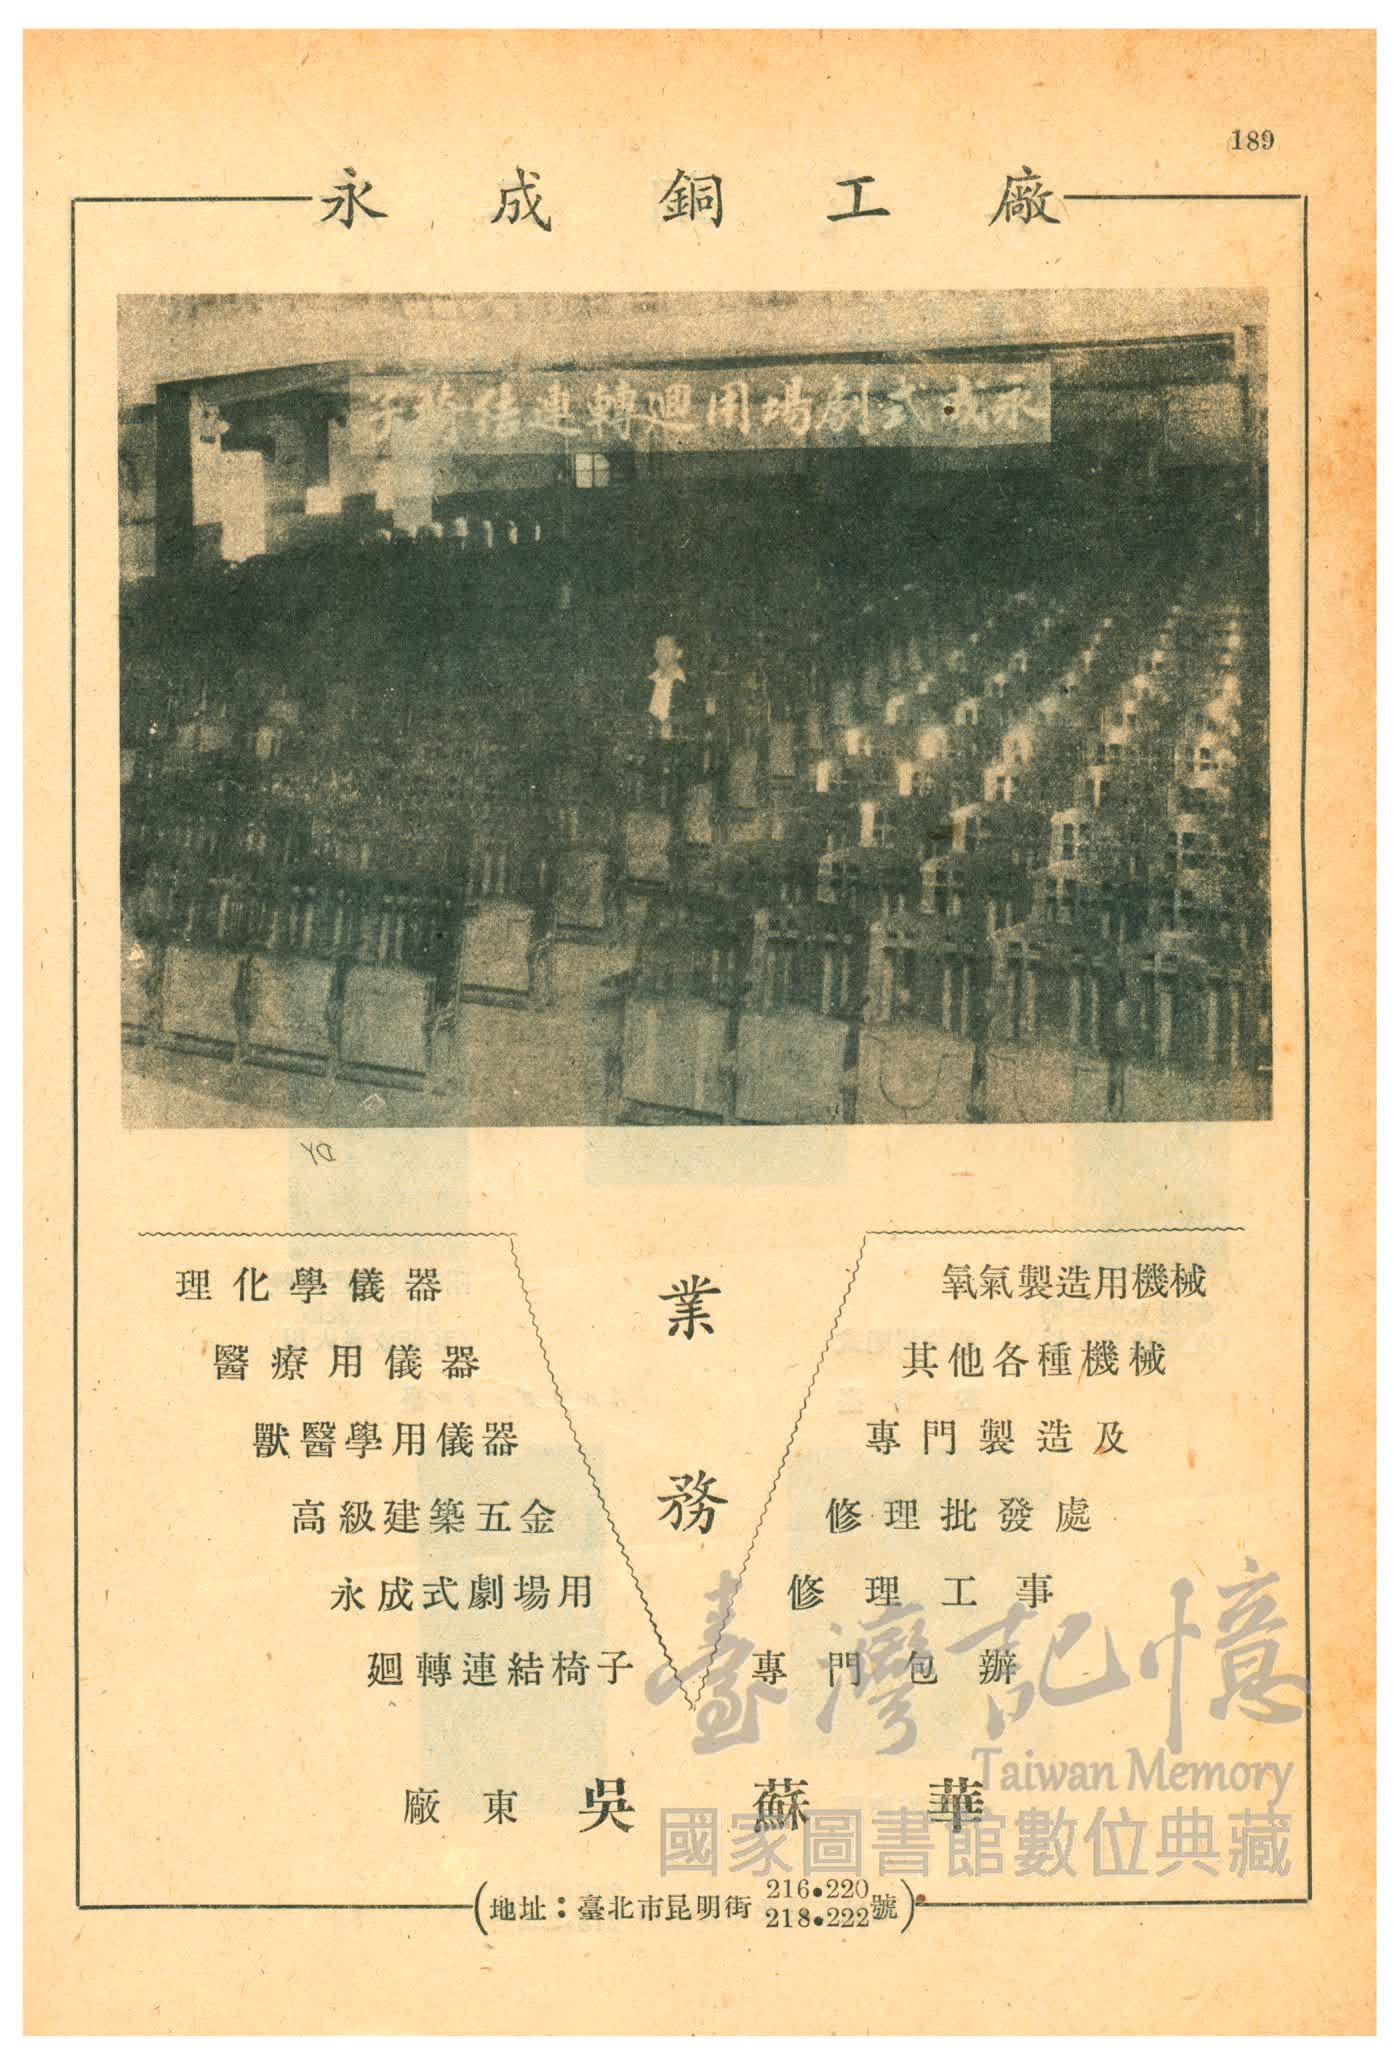 189
永成銅工廠
永成式劇場用廻轉連結椅子
業務
理化學儀器
醫療用儀器
獸醫學用儀器
高級建築五金
永成式劇場用
廻轉連結椅子
氧氣製造用機械
其他各種機械
專門製造及
修理批發處
修理工事
專門包辦
廠東 吳蘇華
(地址：臺北市昆明街 216•220 218•222 號)
臺灣記憶
Taiwan Memory
國家圖書館數位典藏